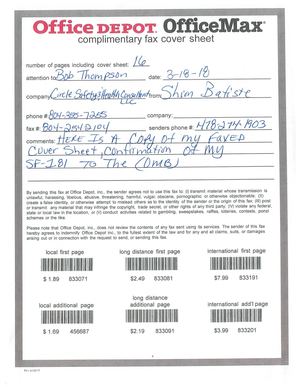 Office DEPOT. OfficeMax®
complimentary fax cover sheet
number of pages including cover sheet: 16
attention to: Bob Thompson date: 3-18-18
company: Circle Safety & Health Consultants LLC from: Shim Batiste
phone #: 804-265-7265 company:
fax #: 804-254-2104 senders phone #: 478-244-1903
comments: HERE IS A COPY of my FAXED
COVER Sheet CONFIRMATION OF my
SF-181 TO The (OMB)
By sending this fax at Office Depot, Inc., the sender agrees not to use this fax to: (i) transmit material whose transmission is
unlawful, harassing, libelous, abusive, threatening, harmful, vulgar, obscene, pornographic or otherwise objectionable; (ii)
create a false identity, or otherwise attempt to mislead others as to the identity of the sender or the origin of this fax; (iii) post
or transmit any material that may infringe the copyright, trade secret, or other rights of any third party; (iv) violate any federal,
state or local law in the location, or (v) conduct activities related to gambling, sweepstakes, raffles, lotteries, contests, ponzi
schemes or the like.
Please note that Office Depot, Inc., does not review the contents of any fax sent using its services. The sender of this fax
hereby agrees to indemnify Office Depot, Inc., to the fullest extent of the law and for any and all claims, suits, or damages
arising out or in connection with the request to send, or sending this fax.
local first page long distance first page international first page
$ 1.89 833071 $2.49 833081 $7.99 833191
local additional page long distance additional page international add'l page
$ 1.69 456687 $2.19 833091 $3.99 833201